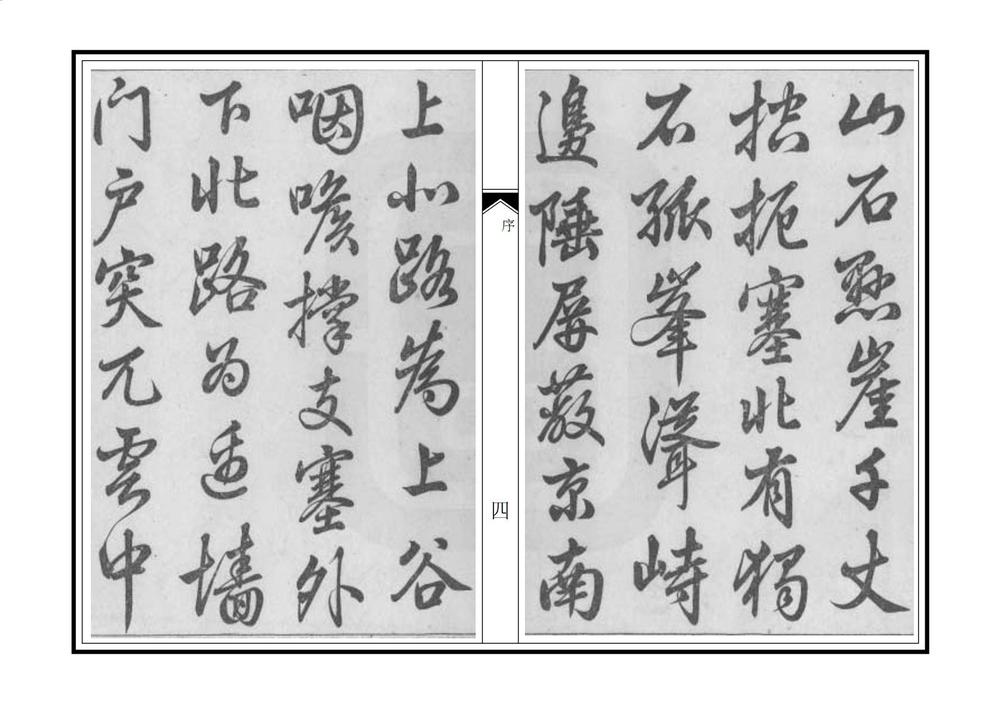 山石懸崖千丈
控扼塞北有獨
石孤峯聳峙
邊陲屏蔽京南
序
四
上北路為上谷
咽喉撐支塞外
下北路为墙
门户突兀雲中